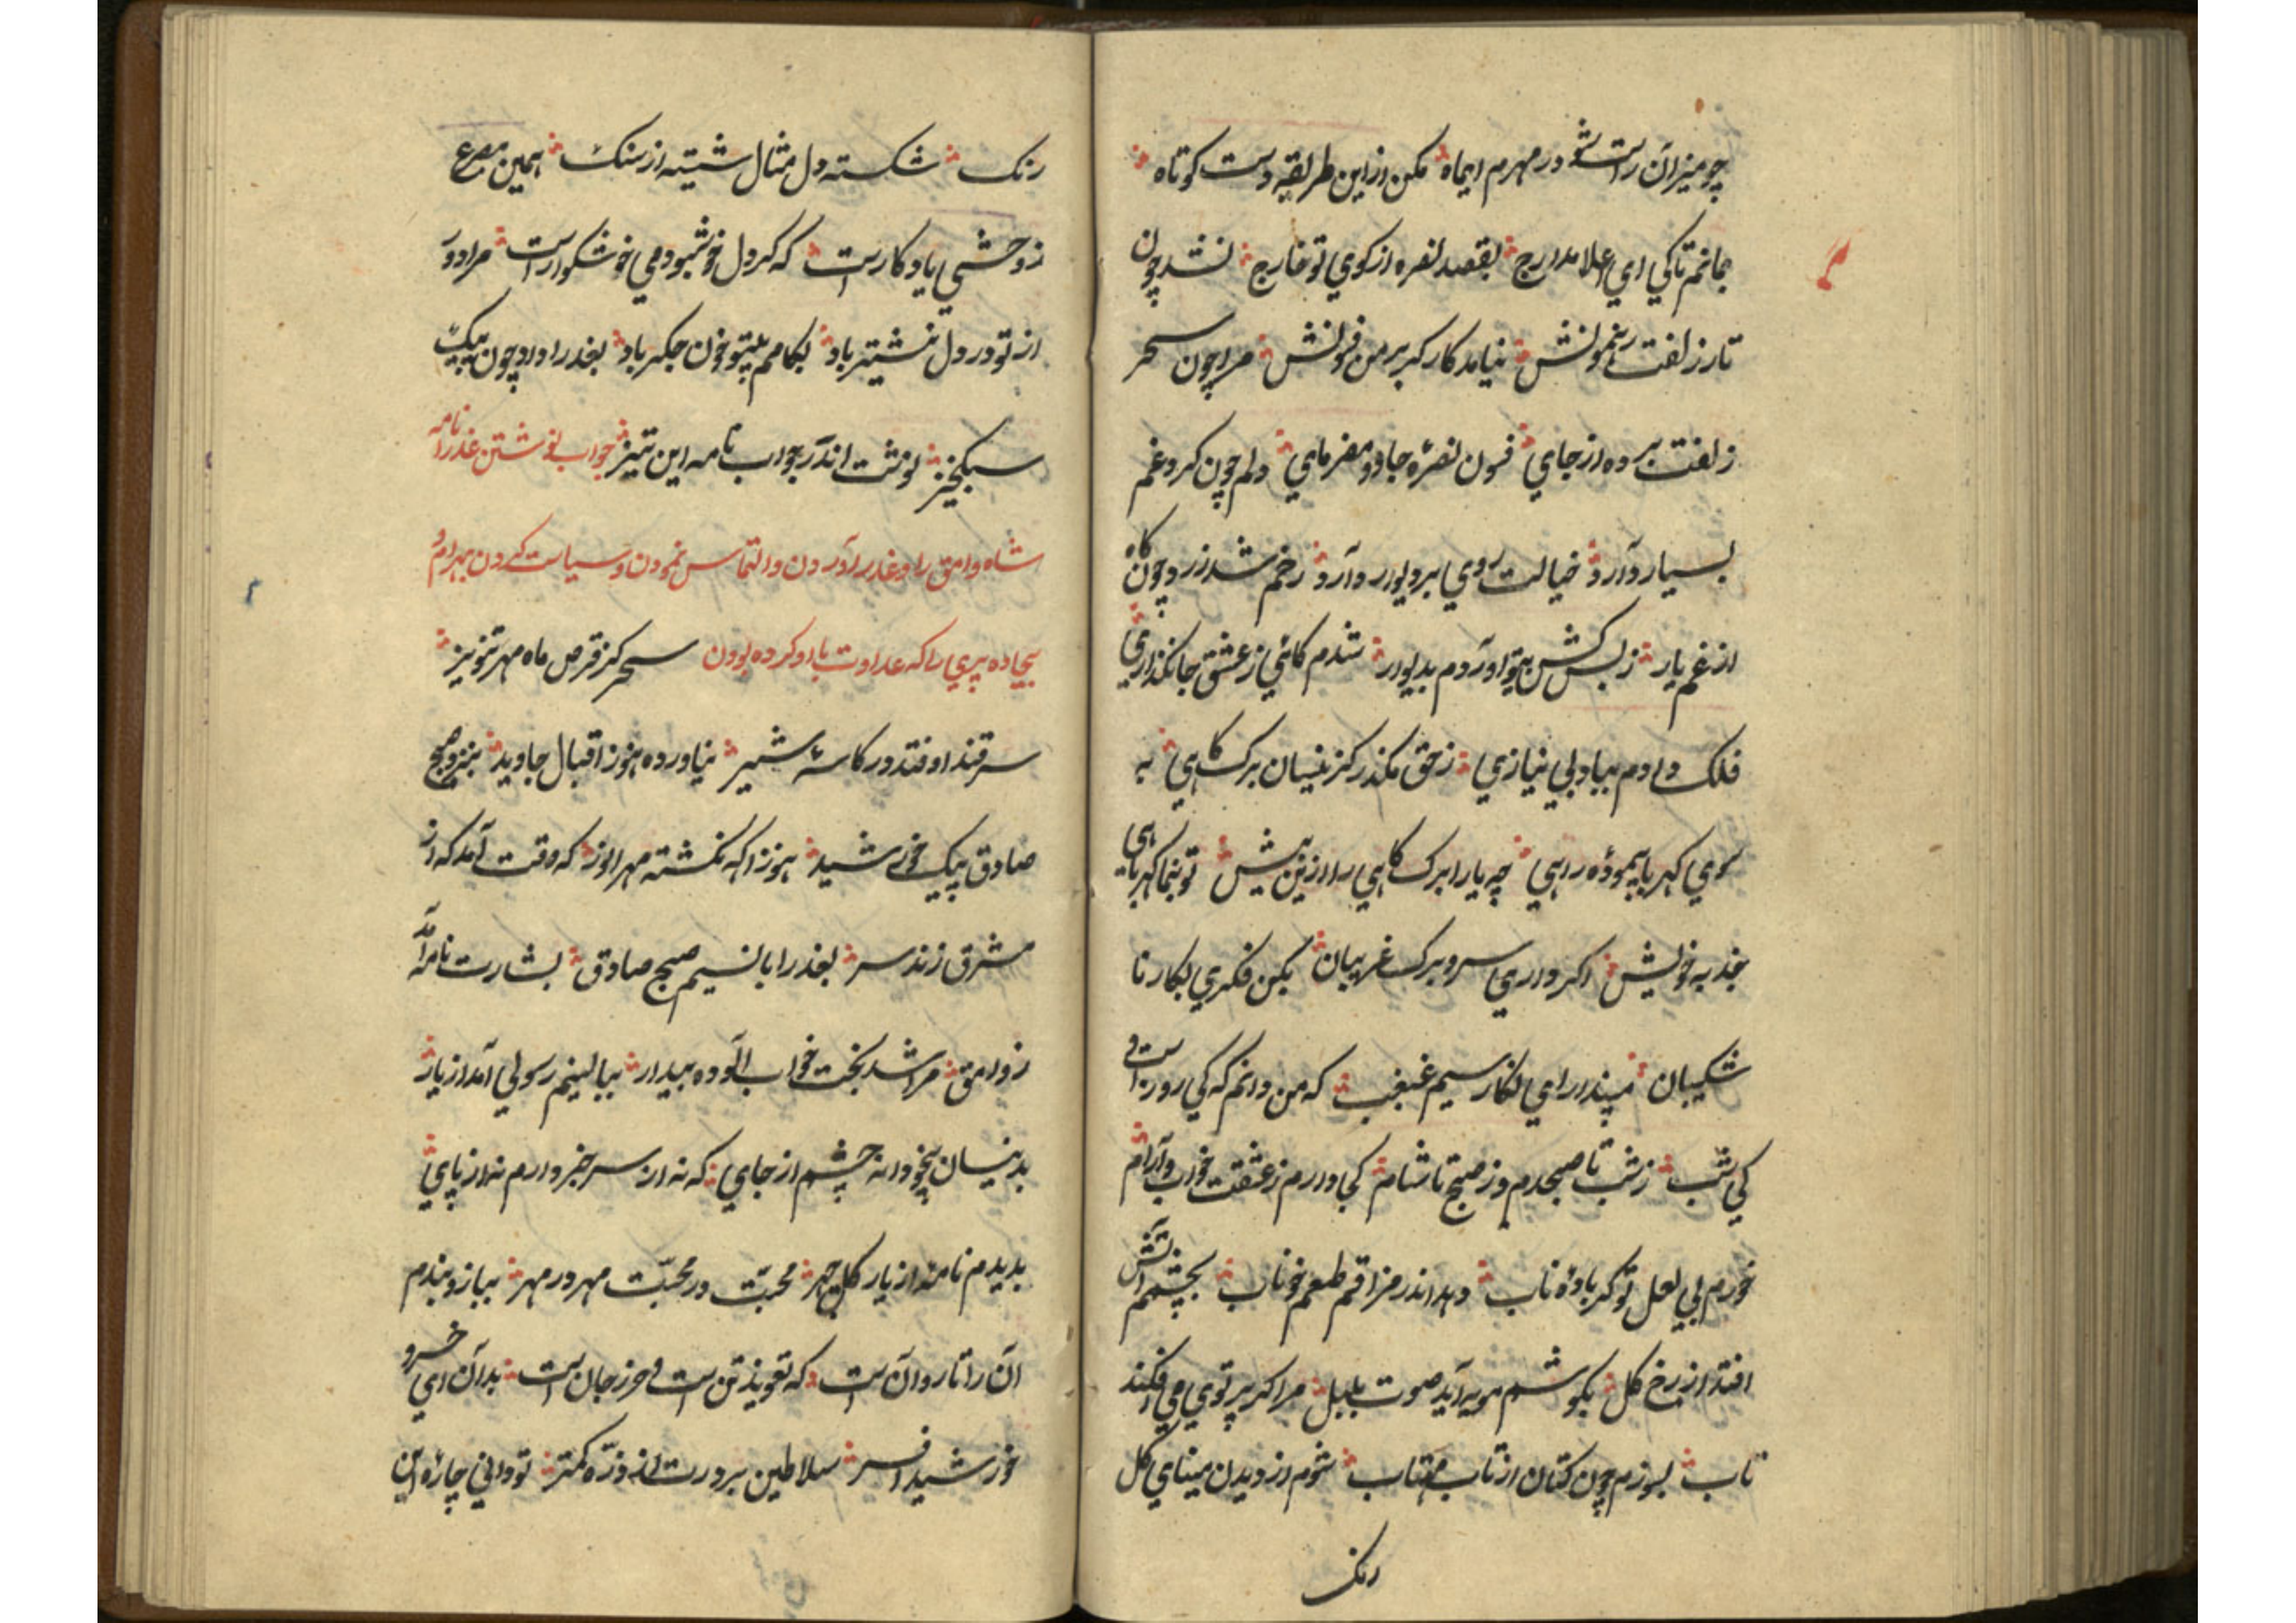 چو میزان راست شو در مهرم ایماه مکن از این طریقه دست کوتاه
بمانم تا کی ای اعلا مدارج بقصد نفره از کوی تو خارج نشد چون
تار زلفت رهنمونش نیامد کارگر بر من فسونش مرا چون سحر
زلفت برده از جای فسون نصره جادو مفرمای دلم چون کرد غم
بسیار دارد خیالت روی بر دیوار دارد رخم شد زرد چون کاه
از غم یار ز بس کش بیتو آوردم بدیوار شدم کاهی ز عشق جانگدازی
فلک دادم بباد بی نیازی ز حق مگذر کزینسان برک کاهی به
سوی کهربا پیموده راهی چه یارا برک کاهی را ازین بیش تو بنما کهربایی
جذبه خویش اکر داری سر و برک غریبان بکن فکری بکار نا
شکیبان مپندار ای نکار سیم غبغب که من دانم که کی روز است و
کی شب ز شب تا صبحدم وز صبح تا شام کجا دارم ز عشقت خواب و آرام
خورم بی لعل تو کر باده ناب دهد اندر مزاقم طعم خوناب بچشمم آتش
افتد از رخ کل بکوشم مویه آید صوت بلبل مرا کر پرتوی می افکند
تاب بسوزم چون کتان از تاب مهتاب شوم از دیدن مینای کل
رنک
رنک شکسته دل مثال شیشه از سنک همین مصرع
ز وحشی یادکار است که کر دل خوش بود می خوشکوار است مرا دور
از تو در دل نیشتر باد بکامم بیتو خون جکر باد بغدرا داد چون پیک
سبکخیز نوشت اندر جواب نامه این تیز جواب نوشتن غدرا نامه
شاه وامق را و غدر آوردن و التماس نمودن و سیاست کردن بهرام و
بیجاده پری را که عداوت با او کرده بودن سحر کز قرص ماه مهر تنویر
سرقند اوفتد در کاسه شیر نیاورده هنوز اقبال جاوید بنزد صبح
صادق پیک خورشید هنوز اکه نکشته مهر انور که وقت آمد که از
مشرق زند سر بغدرا با نسیم صبح صادق بشارت نامه آمد
ز وامق مرا شد بخت خواب آلوده بیدار ببالینم رسولی آمد از یار
بدینسان بیخودانه چشم از جای که نه از سر خبر دارم نه از پای
بدیدم نامه از یار کل چهر محبت در محبت مهر در مهر ببازو بندم
آن را تا روان است که تعویذ تن است و حرز جان است بدان ای خسرو
خورشید افسر سلاطین بر درت از ذره کمتر تو دانی چاره این